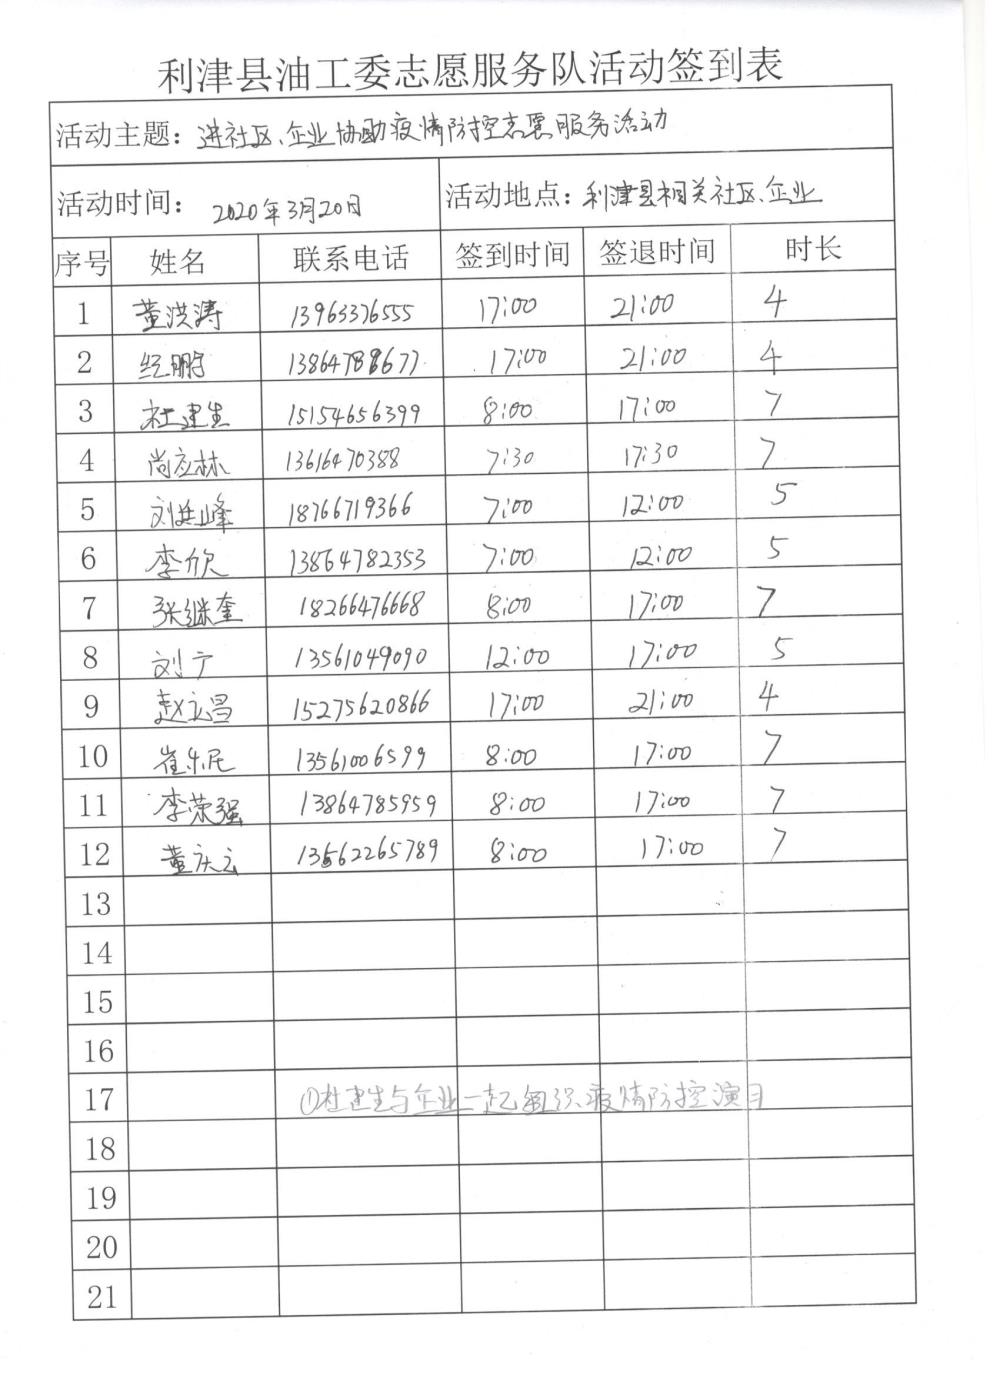 利津县油工委志愿服务队活动签到表
活动主题：进社区、企业协助疫情防控志愿服务活动
活动时间： 2020年3月20日 活动地点：利津县相关社区、企业
序号 姓名 联系电话 签到时间 签退时间 时长
1 董洪涛 13963376555 17:00 21:00 4
2 纪鹏 13864788677 17:00 21:00 4
3 杜建生 15154656399 8:00 17:00 7
4 尚应林 13616470388 7:30 17:30 7
5 刘廷峰 18766719366 7:00 12:00 5
6 李欣 13864782353 7:00 12:00 5
7 张继奎 18266476668 8:00 17:00 7
8 刘宁 13561049090 12:00 17:00 5
9 赵立昌 15275620866 17:00 21:00 4
10 崔乐民 13561006599 8:00 17:00 7
11 李荣强 13864785959 8:00 17:00 7
12 董庆云 13562265789 8:00 17:00 7
13
14
15
16
17 ①杜建生与企业一起组织疫情防控演习
18
19
20
21